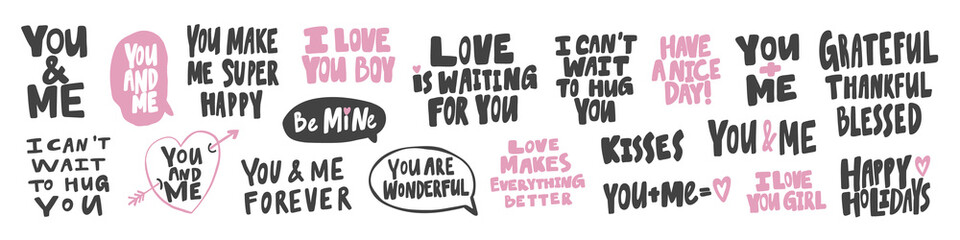 YOU
&
ME
YOU
AND
ME
YOU MAKE
ME SUPER
HAPPY
I LOVE
YOU BOY
Be MiNe
LOVE
iS WAiTiNG
FOR YOU
I CAN'T
WAIT
TO HUG
YOU
HAVE
A NiCE
DAY!
YOU
+
ME
GRATEFUL
THANKFUL
BLESSED
I CAN'T
WAIT
TO HUG
YOU
YOU
AND
ME
YOU & ME
FOREVER
YOU ARE
WONDERFUL
LOVE
MAKES
EVERYTHING
BETTER
KISSES
YOU & ME
YOU+Me=♡
I LOVE
YOU GIRL
HAPPY
HOLIDAYS